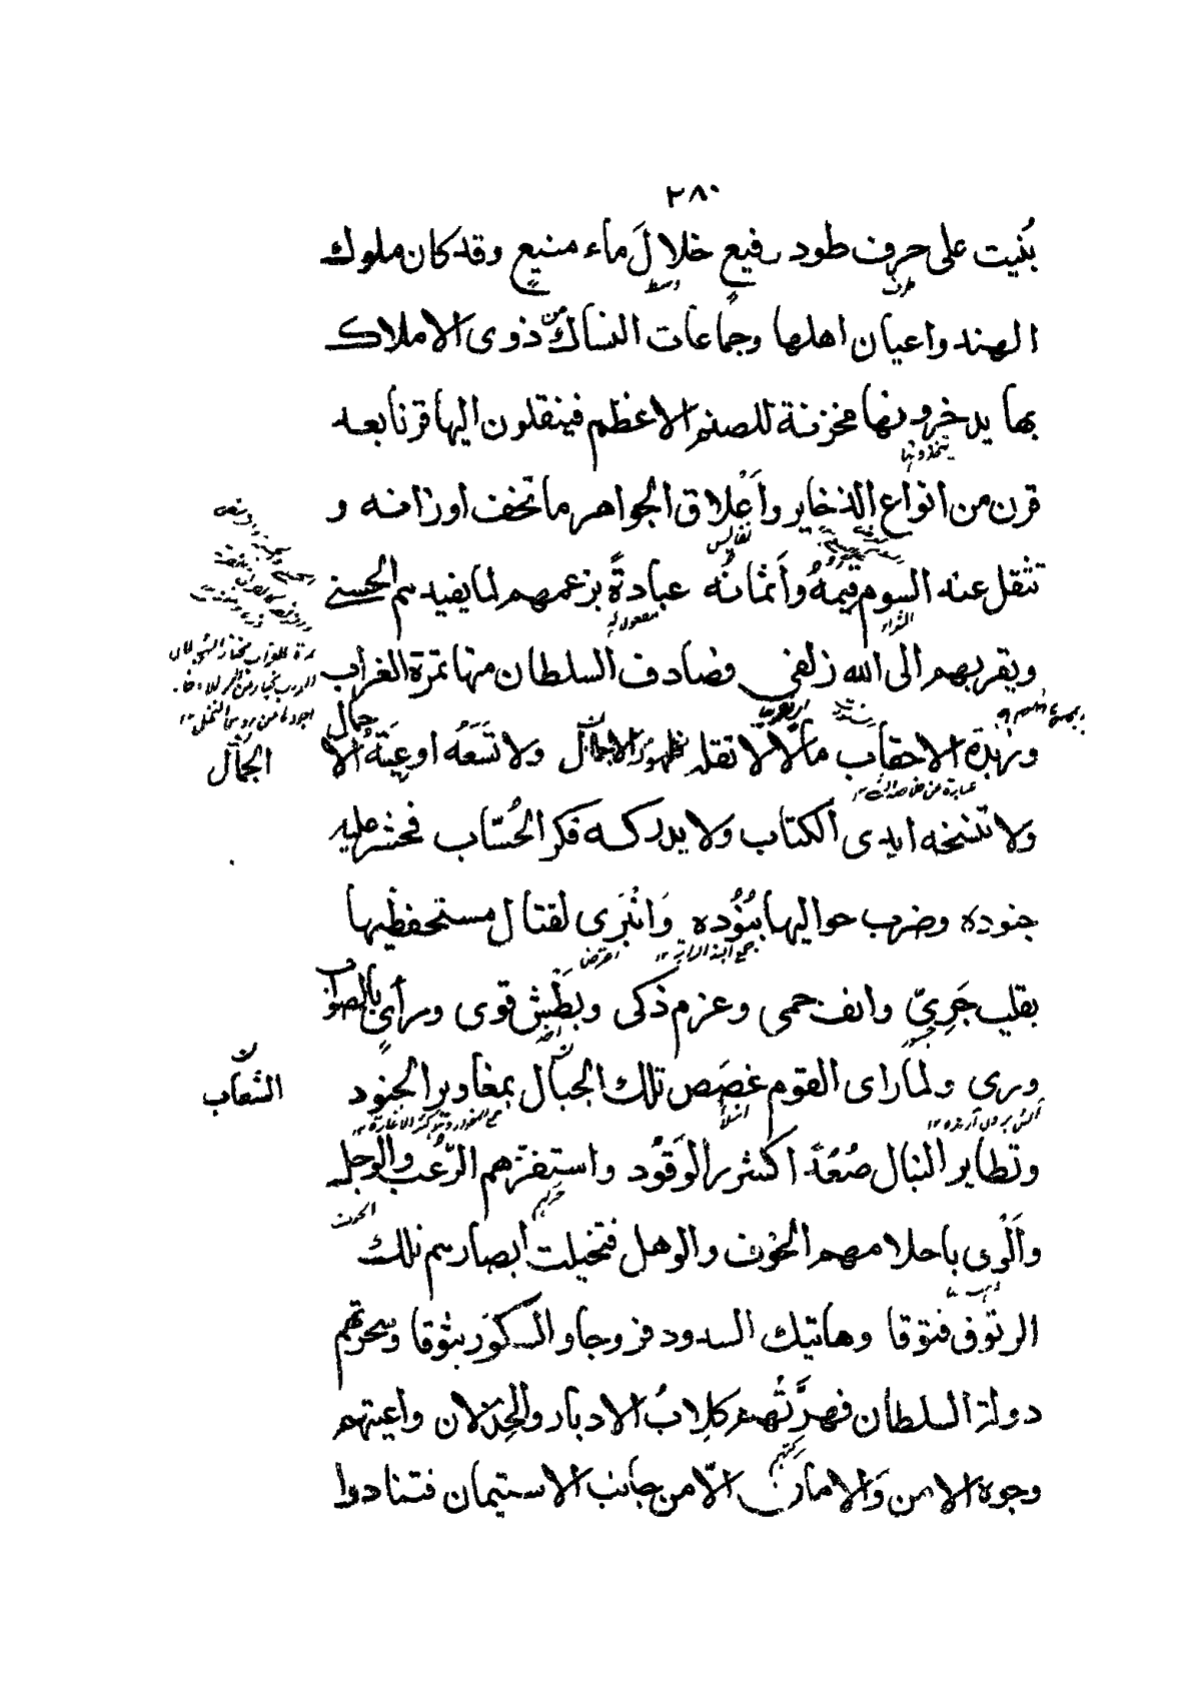 ٢٨٠
بُنيت على حرف طود رفيع خلالَ ماء منيع وقد كان ملوك
طرف
وسط
الهند واعيان اهلها وجماعات النساك من ذوى الاملاك
بها يدخرونها مخزنة للصنم الاعظم فينقلون اليها قرنا بعد
يتخذونها
قرن من انواع الذخاير وأعْلاق الجواهر ما تخف اوزانه و
نفايس
تثقل عنه السوم قيمُهُ وأثمانُه عبادةً بزعمهم لما يفيدهم الحسنى
الشراء
مفعول له
ويقربهم الى الله زلفى فصادف السلطان منها تمرة الغراب
وزبدة الاحقاب مالا لا تقله ظهور الاجمال ولا تسَعَه اوعِيَةُ الا
حمال
الجمال
ولا تنسخه ايدى الكتاب ولا يدركه فكر الحُسّاب فحشر عليه
جنوده وضرب حواليها بنُوُده وَانْبَرى لقتال مستحفظيها
اعترض
بقلب جَرِيّ وانف حمى وعزم ذكى وبطْش قوى ورأى بالصواب
ورى ولما راى القوم غصَص تلك الجبال بمغاوير الجنود
امتلأ
الشعاب
وتطاير النبال صُعُدًا كشرر الوَقُود واستفزهم الرّعُب والوَجل
الخوف
وألْوى باحلامهم الخوف والوهل فتخيلت ابصارهم تلك
الرتوق فتوقا وهاتيك السدود فروجا والسكور بثوقا وسحرتهم
دولة السلطان فهرَّتْهم كلابُ الادبار والخِذلان واعيتهم
وجوه الامن وَالامان الّا من جانب الاستيمان فتنادوا